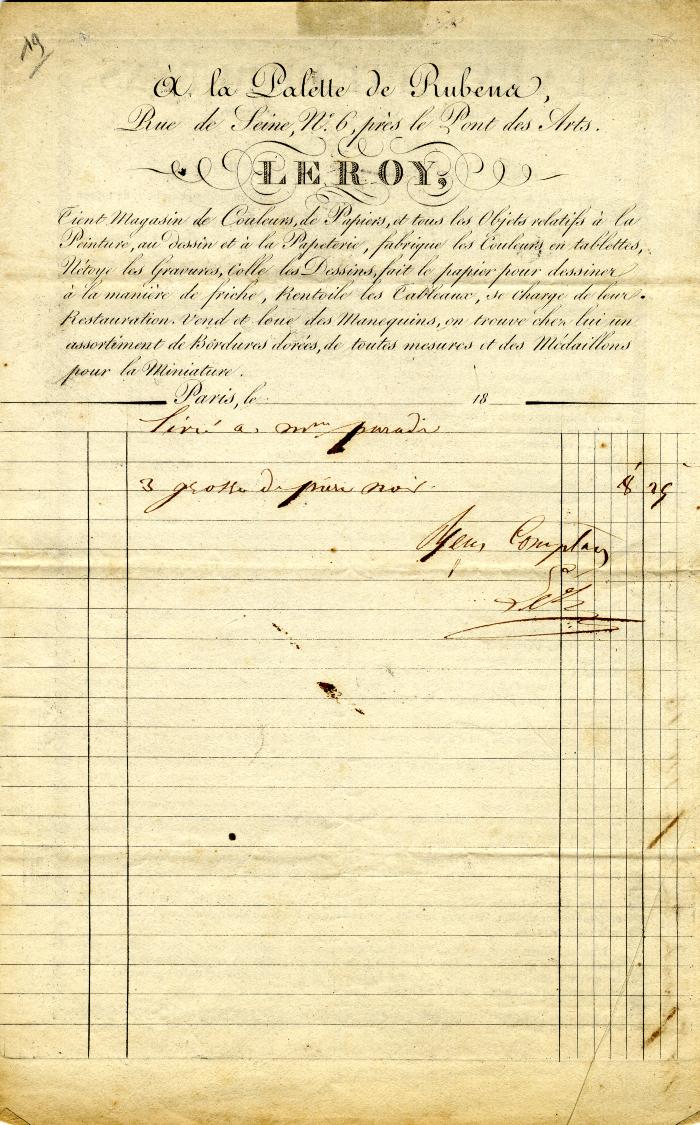 19
À la Palette de Rubens,
Rue de Seine, N.º 6, près le Pont des Arts.
LEROY,
Tient Magasin de Couleurs, de Papiers, et tous les Objets relatifs à la
Peinture, au dessin et à la Papeterie, fabrique les Couleurs en tablettes,
Nétoye les Gravures, Colle les Dessins, fait le papier pour dessiner
à la manière de friche, Rentoile les Tableaux, se charge de leur
Restauration. Vend et loue des Manequins, on trouve chez lui un
assortiment de Bordures dorées, de toutes mesures et des Médaillons
pour la Miniature.
Paris, le 18
livré a mm
3 grosse de noir 8
Comptan